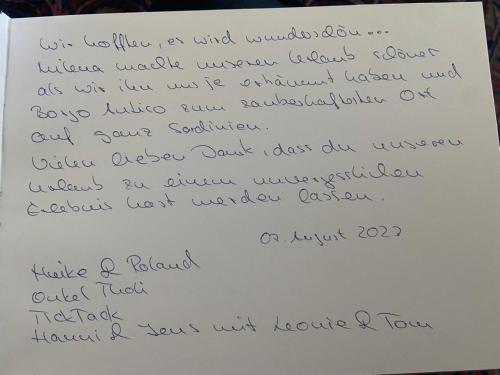 Wir hofften, es wird wunderschön...
Milena machte unseren Urlaub schöner
als wir ihn uns je erträumt haben und
Borgo Antico zum zauberhaftesten Ort
auf ganz Sardinien.
Vielen lieben Dank, dass du unseren
Urlaub zu einem unvergesslichen
Erlebnis hast werden lassen.
07. August 2022
Heike & Roland
Onkel Tholi
TickTack
Hanni & Jens mit Leonie & Tom